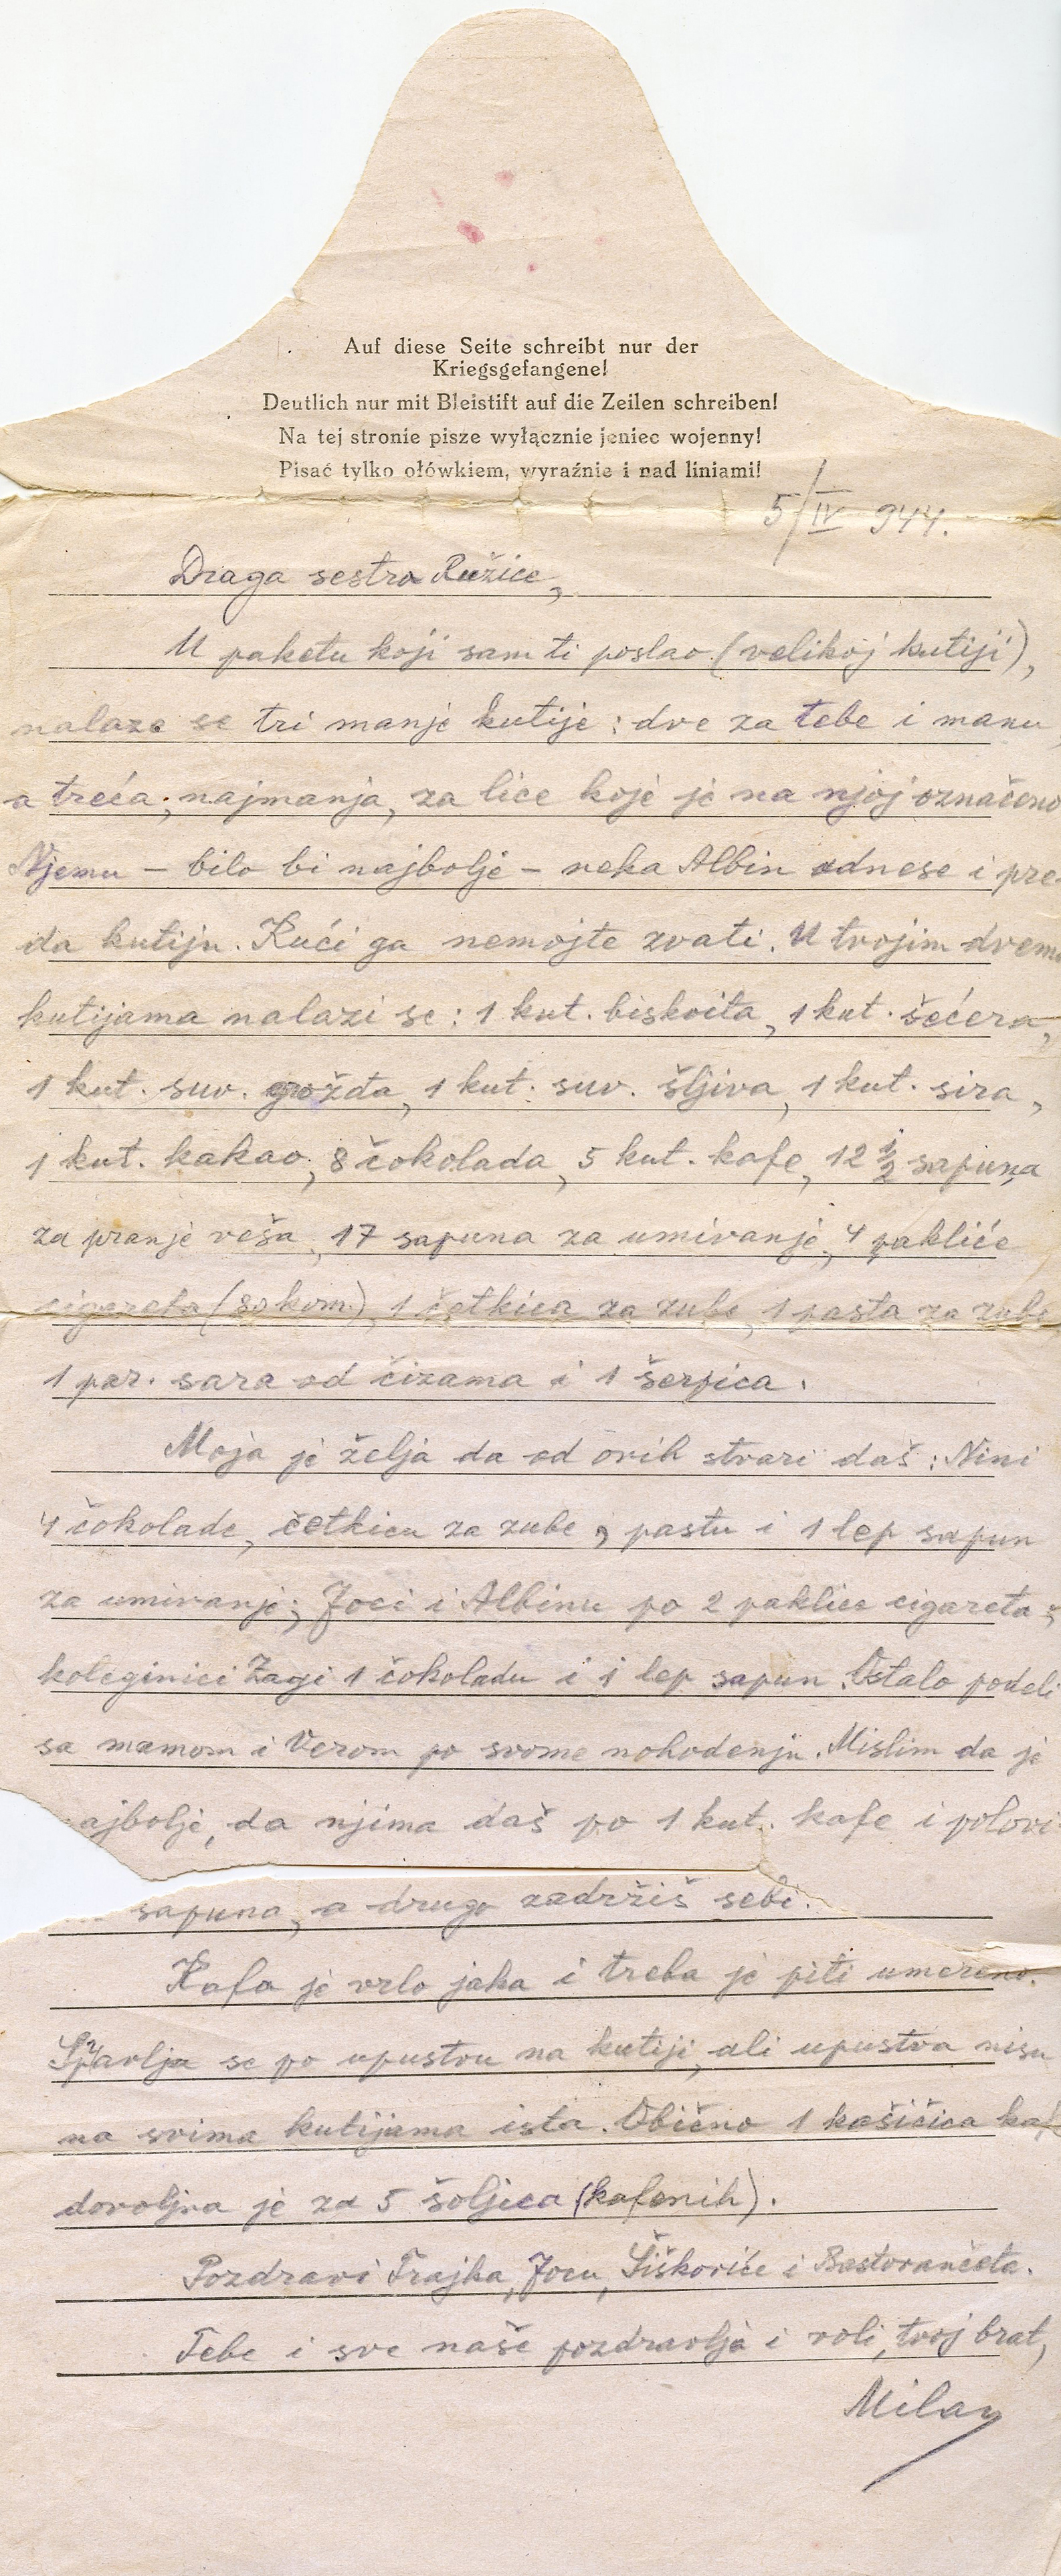 Auf diese Seite schreibt nur der
Kriegsgefangene!
Deutlich nur mit Bleistift auf die Zeilen schreiben!
Na tej stronie pisze wyłącznie jeniec wojenny!
Pisać tylko ołówkiem, wyraźnie i nad liniami!
5/IV 944.
Draga sestro Ružice,
U paketu koji sam ti poslao (velikoj kutiji),
nalaze se tri manje kutije: dve za tebe i mamu,
a treća, najmanja, za lice koje je na njoj označeno
Njemu – bilo bi najbolje – neka Albin odnese i pre-
da kutiju. Kući ga nemojte zvati. U tvojim dvema
kutijama nalazi se: 1 kut. biskvita, 1 kut. šećera,
1 kut. suv. grožđa, 1 kut. suv. šljiva, 1 kut. sira,
1 kut. kakao, 8 čokolada, 5 kut. kafe, 12 1/2 sapuna
za pranje veša, 17 sapuna za umivanje, 4 pakliće
cigareta (80 kom.), 1 četkica za zube, 1 pasta za zube
1 par. sara od čizama i 1 šerpica.
Moja je želja da od ovih stvari daš: Nini
4 čokolade, četkicu za zube, pastu i 1 lep sapun
za umivanje; Joci i Albinu po 2 paklice cigareta;
koleginici Zagi 1 čokoladu i 1 lep sapun. Ostalo podeli
sa mamom i Verom po svome nahođenju. Mislim da je
ajbolje, da njima daš po 1 kut. kafe i polovi
sapuna, a drugo zadržiš sebi.
Kafa je vrlo jaka i treba je piti umereno.
Spravlja se po upustvu na kutiji, ali upustva nisu
na svima kutijama ista. Obično 1 kašičica kafe
dovoljna je za 5 šoljica (kafenih).
Pozdravi Trajka, Jocu, Šiškoviće i
Tebe i sve naše pozdravlja i voli, tvoj brat,
Milan